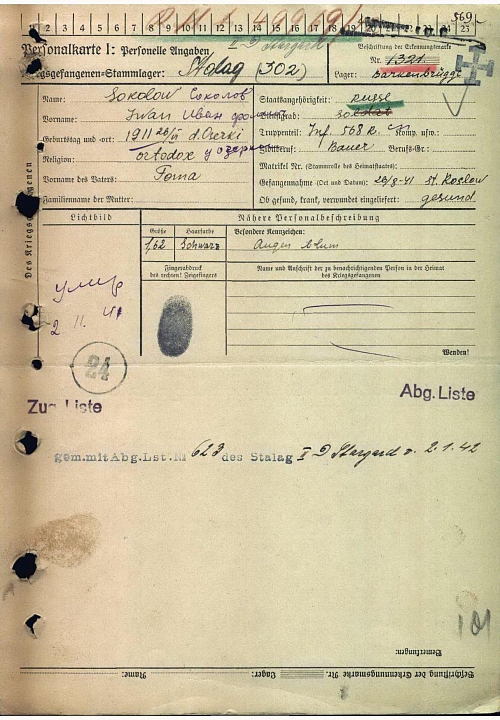 1 2 3 4 5 6 7 8 9 10 11 12 13 14 15 16 17 18 19 20 21 22 23 24 25
569
Personalkarte I: Personelle Angaben
II D Stargard
Beschriftung der Erkennungsmarke
Kriegsgefangenen-Stammlager: Stalag (302)
Nr. 1321
Lager: Barkenbrügge
Des Kriegsgefangenen
Name: Sokolow Соколов
Vorname: Iwan Иван
Geburtstag und -ort: 1911
Religion: ortodox
Vorname des Vaters: Foma
Familienname der Mutter:
Staatsangehörigkeit: russe
Dienstgrad: soldat
Truppenteil: Inf. 568 R. Komp. usw.:
Zivilberuf: Bauer Berufs-Gr.:
Matrikel Nr. (Stammrolle des Heimatstaates):
Gefangennahme (Ort und Datum): 29/8-41 st. Roslow
Ob gesund, krank, verwundet eingeliefert: gesund
Lichtbild
Nähere Personalbeschreibung
Größe Haarfarbe Besondere Kennzeichen:
1,62 Schwarz
Augen blau
Fingerabdruck
des rechten! Zeigefingers
Name und Anschrift der zu benachrichtigenden Person in der Heimat
des Kriegsgefangenen
умер
2 11. 41
Wenden!
24
Zug Liste
Abg. Liste
gem.mit Abg.Lst.N 623 des Stalag II D Stargard v. 2.1.42
101
Bemerkungen:
Beschriftung der Erkennungsmarke Nr. Lager: Name: